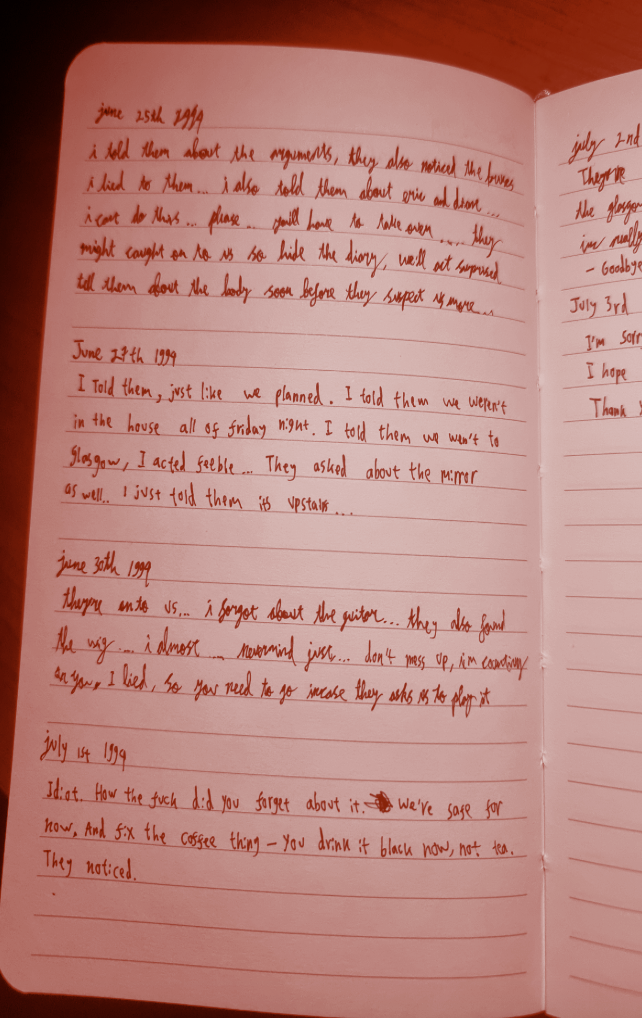 june 25th 1999
i told them about the arguments, they also noticed the bruises
i lied to them... i also told them about eric and
i cant do this... please... you'll have to take over.... they
might caught on to us so hide the diary, we'll act suprised
tell them about the body soon before they suspect us more...
June 27th 1999
I Told them, just like we planned. I told them we weren't
in the house all of friday night. I told them we went to
glasgow, I acted feeble... They asked about the mirror
as well.. I just told them its upstairs...
june 30th 1999
theyre onto us... i forgot about the guitar... they also found
the wig.... i almost .... nevermind just... don't mess up, i'm counting
on you, I lied, so you need to go incase they asks us to play it
july 1st 1999
Idiot. How the fuck did you forget about it. We're safe for
now, And fix the coffee thing – You drink it black now, not tea.
They noticed.
july 2nd
They're
the glasgow
im really
– Goodbye
July 3rd
I'm sorr
I hope
Thank Y